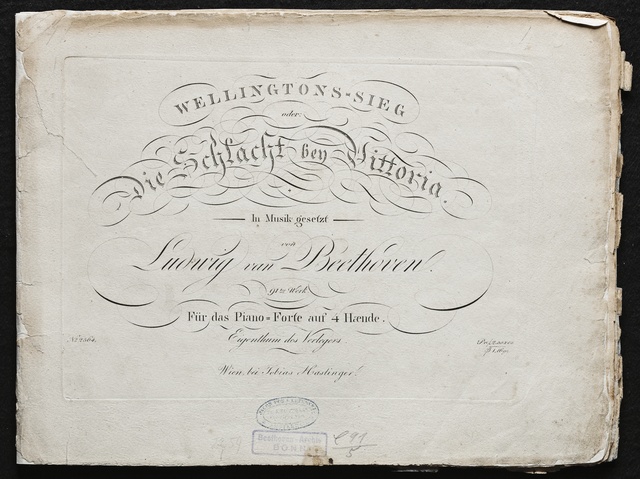 WELLINGTONS-SIEG
oder:
Die Schlacht bey Vittoria.
In Musik gesetzt
von
Ludwig van Beethoven.
91tes Werk
Für das Piano-Forte auf 4 Hænde.
Eigenthum des Verlegers.
Wien, bei Tobias Haslinger.
BONN
C 91
5